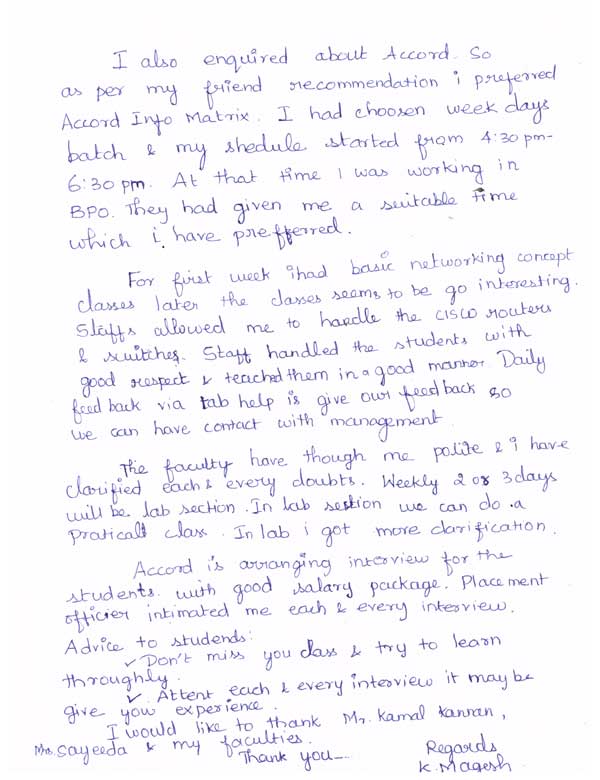 I also enquired about Accord. So
as per my friend recommendation i preferred
Accord Info Matrix. I had choosen week days
batch & my shedule started from 4:30 pm-
6:30 pm. At that time I was working in
BPO. They had given me a suitable time
which i have prefferred.
For first week ihad basic networking concept
classes later the classes seems to be go interesting.
Staffs allowed me to handle the CISCO routers
& switches. Staff handled the students with
good respect & teached them in a good manner. Daily
feed back via tab help is give our feed back so
we can have contact with management.
The faculty have though me polite & i have
clarified each & every doubts. Weekly 2 or 3 days
will be lab section. In lab section we can do a
praticall class. In lab i got more clarification.
Accord is arranging interview for the
students with good salary package. Placement
officier intimated me each & every interview.
Advice to studends:
✓ Don't miss you class & try to learn
throughly.
✓ Attent each & every interview it may be
give you experience.
I would like to thank Mr. Kamal Kannan,
Mrs. Sayeeda & my faculties.
Thank you-- Regards
K. Magesh